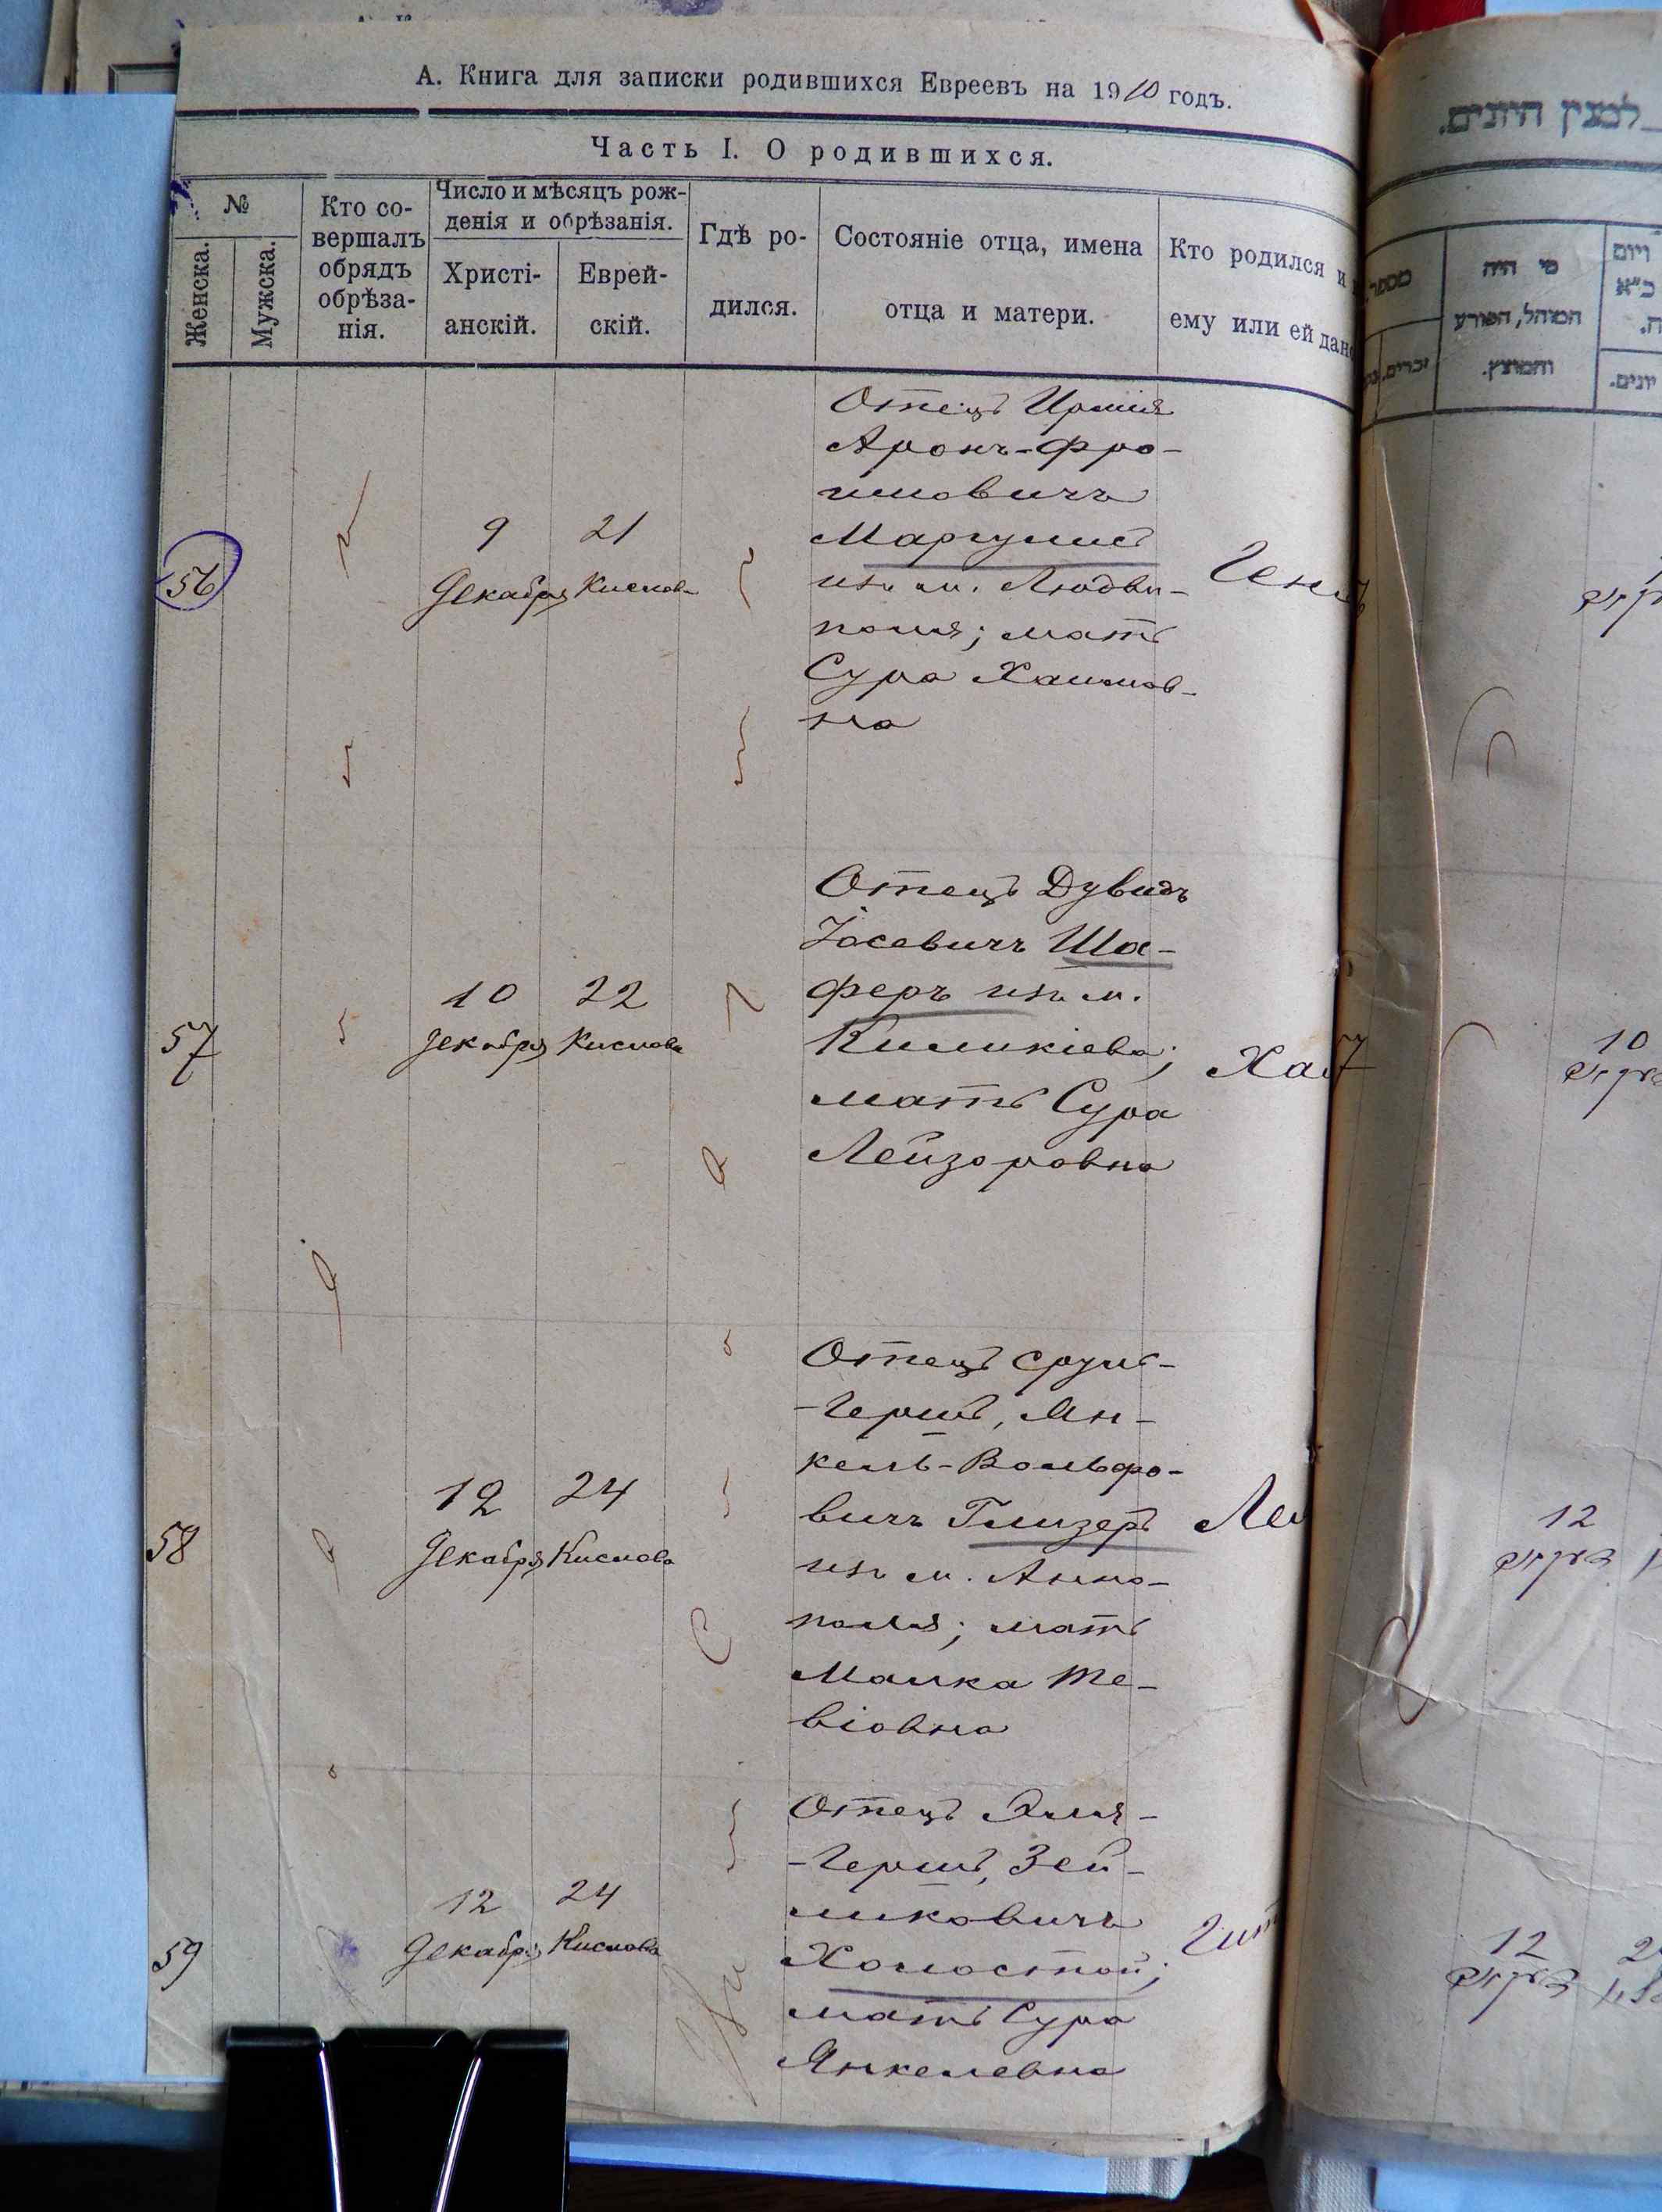 А. Книга для записки родившихся Евреевъ на 1910 годъ.
Часть I. О родившихся.
№
Женска.
Мужска.
Кто со-
вершалъ
обрядъ
обрѣза-
нія.
Число и мѣсяцъ рож-
денія и обрѣзанія.
Христі-
анскій.
Еврей-
скій.
Гдѣ ро-
дился.
Состояніе отца, имена
отца и матери.
Кто родился и
ему или ей дано
56
9
Декабря
21
Кислова
Отецъ
Аронъ-Фро-
имовичъ
Маргулисъ
изъ м. Людви-
поля; мать
Сура Хаимов-
на
57
10
Декабря
22
Кислова
Отецъ Дувидъ
Іосевичъ Ша-
феръ изъ м.
мать Сура
Лейзоровна
58
12
Декабря
24
Кислова
Отецъ Сруль-
-Гершъ, Ян-
кель-Вольфо-
вичъ Глизеръ
изъ м. Анно-
поля; мать
Малка Те-
віовна
59
12
Декабря
24
Кислова
Отецъ Эля-
-Гершъ, Зей-
ликовичъ
Холостой;
мать Сура
Янкелевна
למנין היונים.
מספר
זכרים
מי היה
המוהל, הפורע
והמוצץ.
יונים.
10
12
12